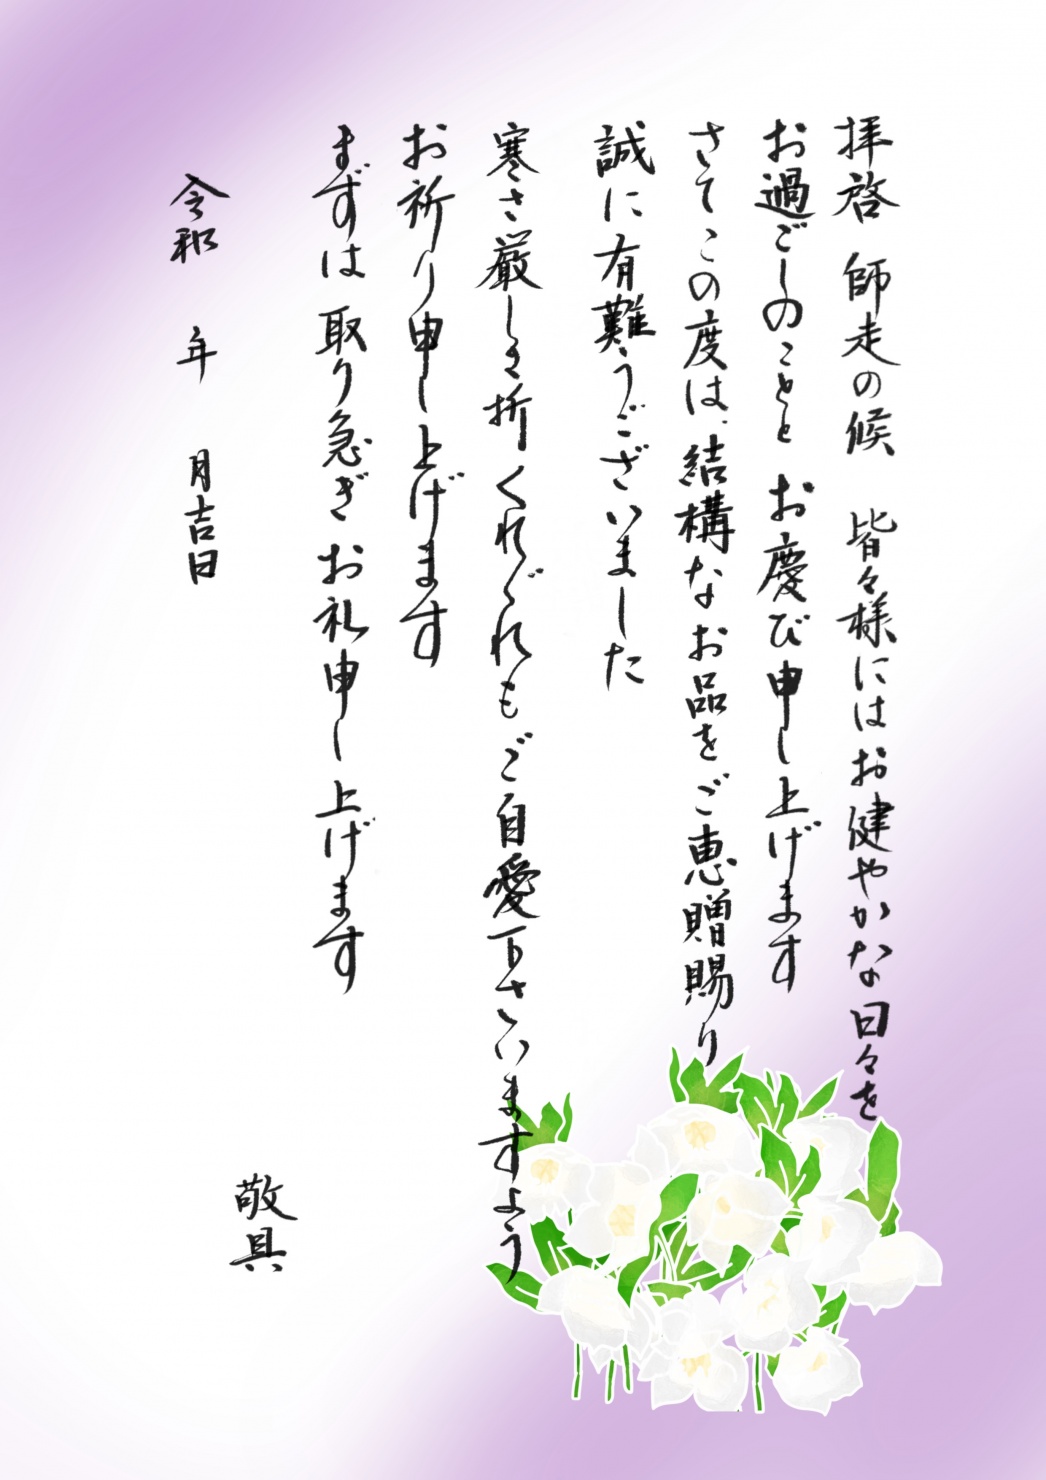 拝啓 師走の候 皆々様にはお健やかな日々を
お過ごしのことと お慶び申し上げます
さてこの度は、結構なお品をご恵贈賜り
誠に有難うございました
寒さ厳しき折 くれぐれもご自愛下さいますよう
お祈り申し上げます
まずは 取り急ぎ お礼申し上げます
敬具
令和 年 月吉日